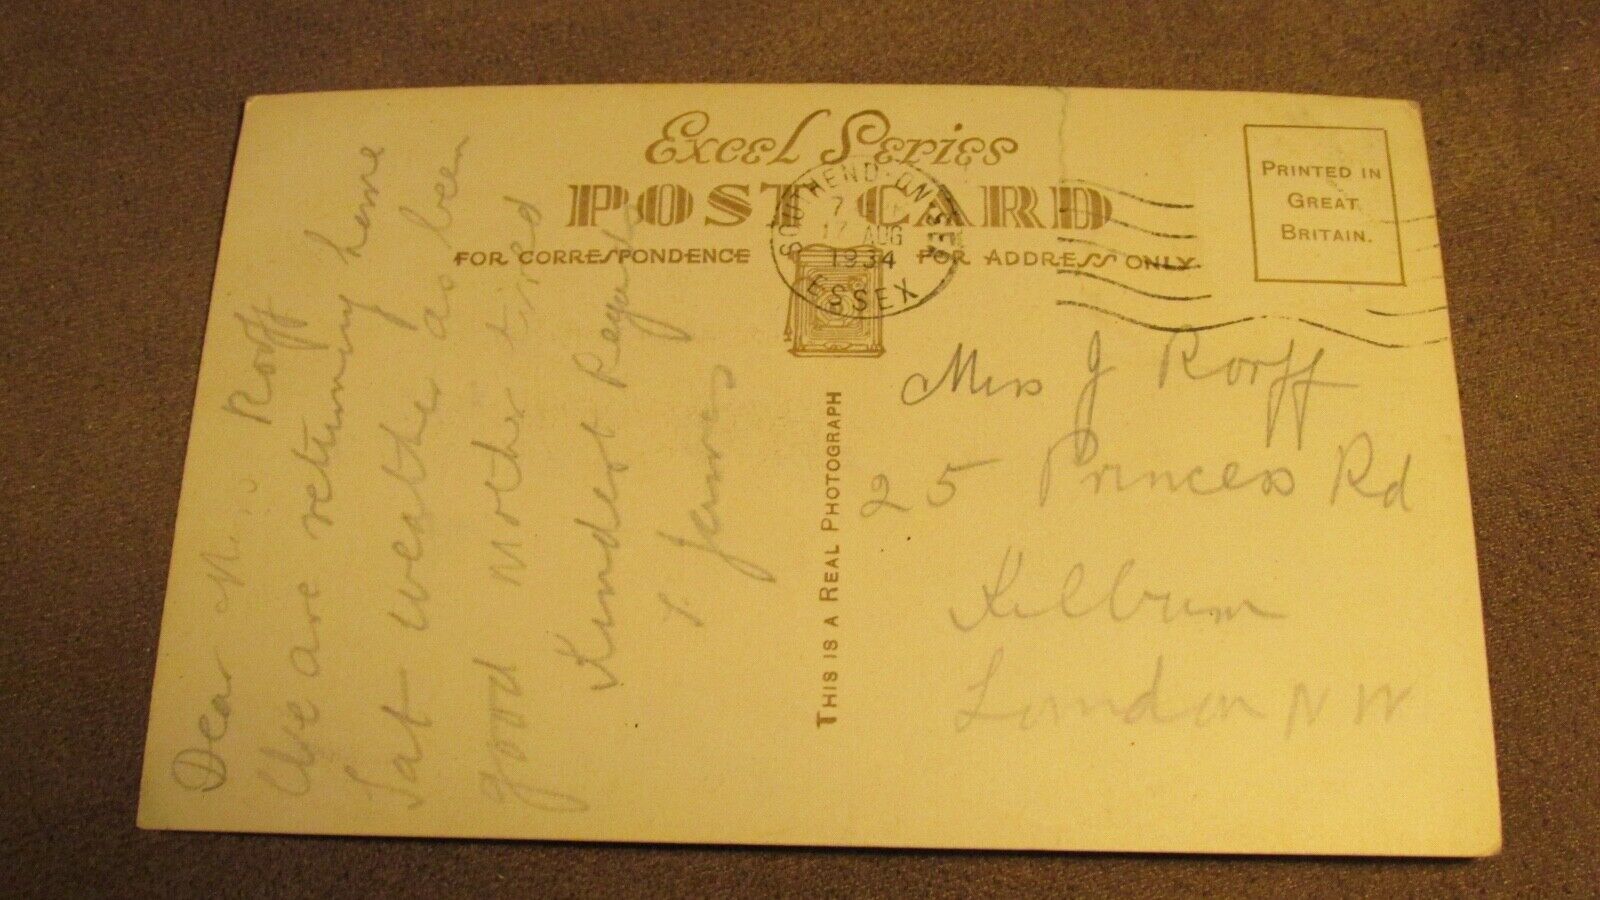 Excel Series
POST CARD
FOR CORRESPONDENCE
FOR ADDRESS ONLY
PRINTED IN
GREAT
BRITAIN.
SOUTHEND-ON-SEA
7
17 AUG
1934
ESSEX
THIS IS A REAL PHOTOGRAPH
Dear Miss Rorff
We are returning home
Sat weather as been
good Mother tired
Kindest Regards
Miss J Rorff
25 Princess Rd
Kilburn
London NW